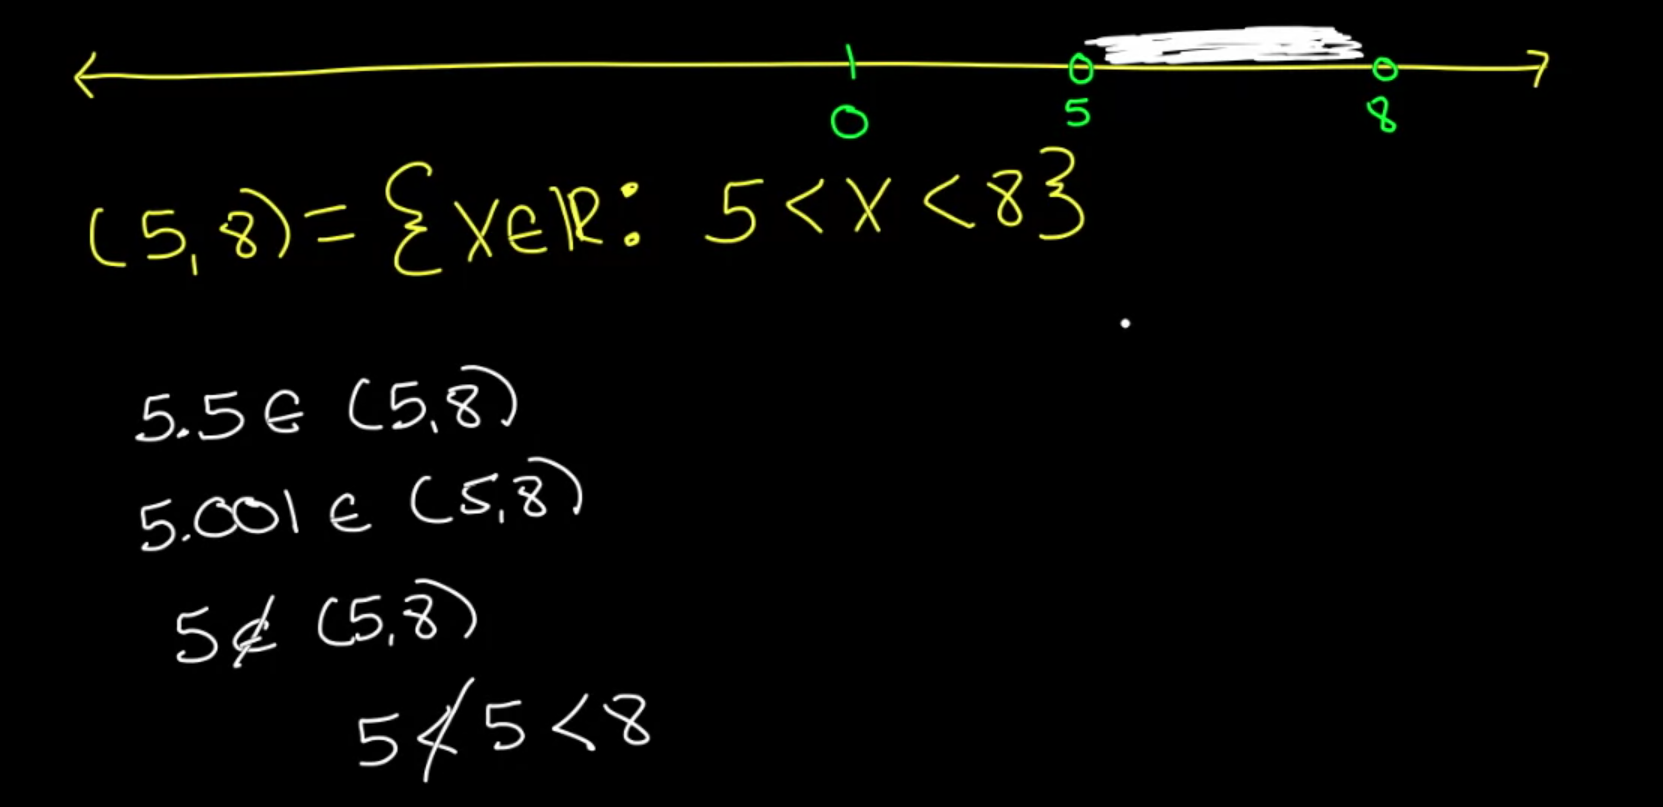 0 5 8
(5,8)={x∈ℝ: 5<x<8}
5.5∈ (5,8)
5.001∈ (5,8)
5∉ (5,8)
5≮5<8